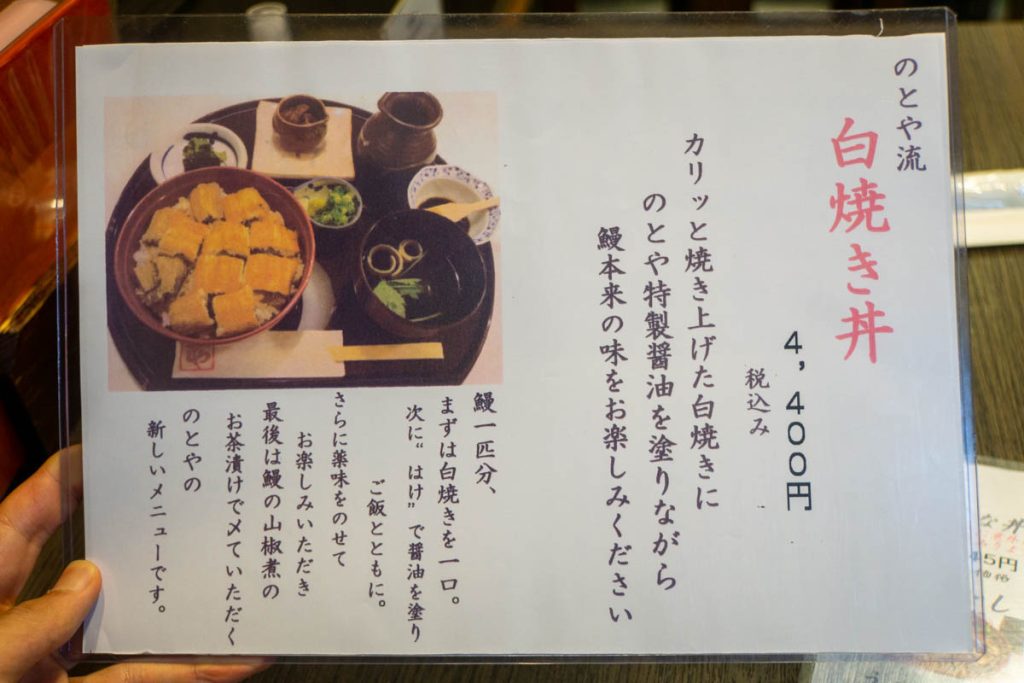 のとや流
白焼き丼
4,400円
税込み
カリッと焼き上げた白焼きに
のとや特製醤油を塗りながら
鰻本来の味をお楽しみください
鰻一匹分、
まずは白焼きを一口。
次に“はけ”で醤油を塗り
ご飯とともに。
さらに薬味をのせて
お楽しみいただき
最後は鰻の山椒煮の
お茶漬けで〆ていただく
のとやの
新しいメニューです。
な丼
45円
価格
し